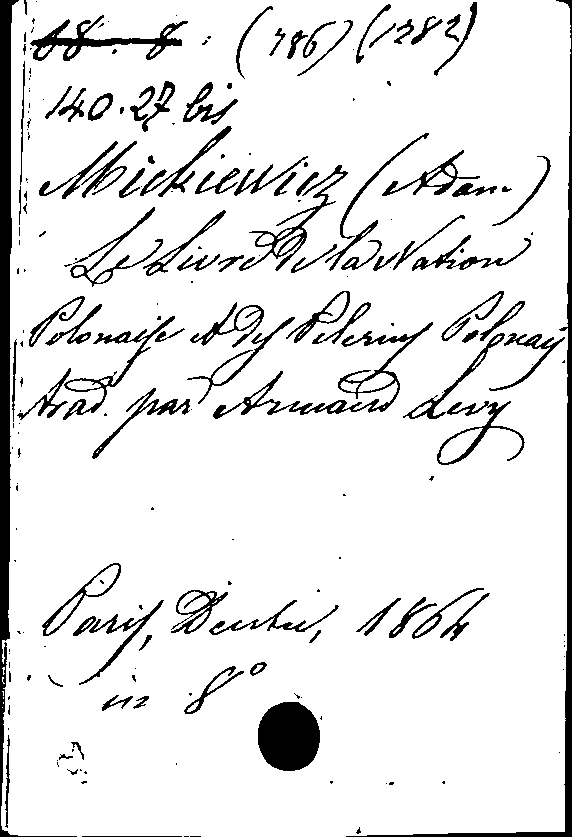 68. 8. (786) (1282)
140.27 bis
Mickiewicz (Adam)
Le Livre de la Nation
Polonaise et des Pelerins Polonais
trad. par Armand Levy
Paris, Dentu, 1864
in 8°